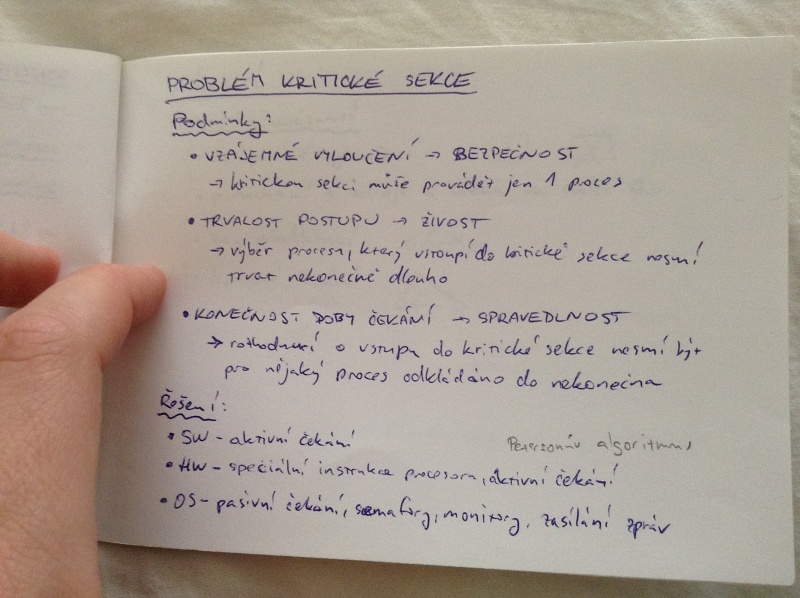 PROBLÉM KRITICKÉ SEKCE
Podmínky:
• VZÁJEMNÉ VYLOUČENÍ → BEZPEČNOST
→ kritickou sekci může provádět jen 1 proces
• TRVALOST POSTUPU → ŽIVOST
→ výběr procesu, který vstoupí do kritické sekce nesmí
trvat nekonečně dlouho
• KONEČNOST DOBY ČEKÁNÍ → SPRAVEDLNOST
→ rozhodnutí o vstupu do kritické sekce nesmí být
pro nějaký proces odkládáno do nekonečna
Řešení:
• SW - aktivní čekání
Petersonův algoritmus
• HW - speciální instrukce procesoru, aktivní čekání
• OS - pasivní čekání, semafory, monitory, zasílání zpráv